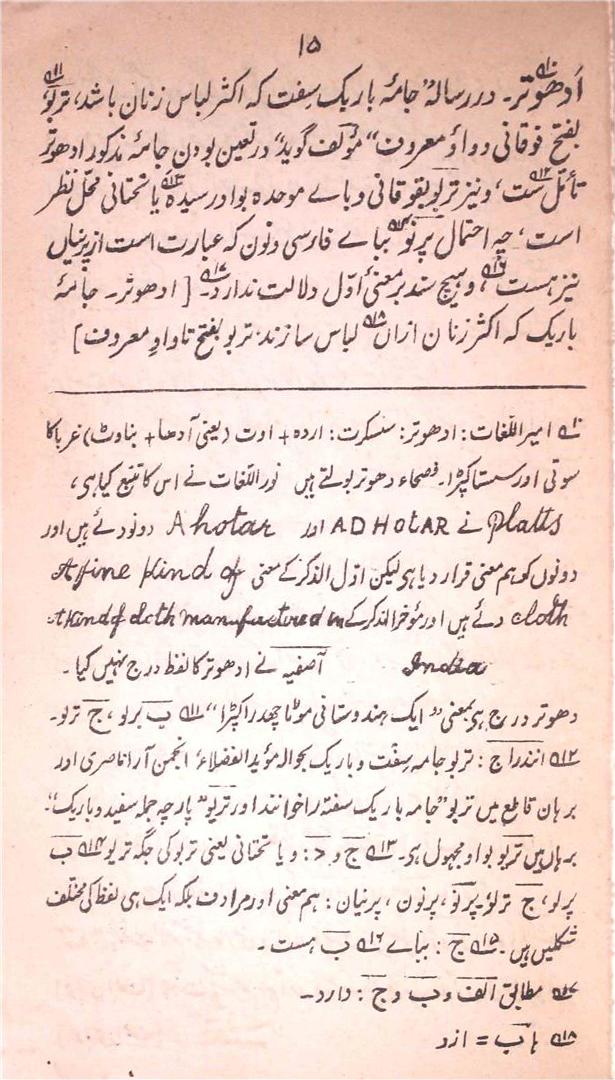 ۱۵
اَدھوتر۔ در رسالہ "جامۂ باریک سفت کہ اکثر لباس زنان باشد، تربو،
بفتح فوقانی و واوِ معروف" مؤلف گوید" در تعین بودن جامۂ مذکور ادھوتر
تأمّل ست، و نیز تربو بفوقانی و باے موحدہ بواو رسیدہ یا تحتانی محلّ نظر
است، چہ احتمال پرنو بباے فارسی و نون کہ عبارت است از پرنیاں
نیز ہست، و ہیچ سند بر معنیٔ اوّل دلالت ندارد۔ [ ادھوتر۔ جامۂ
باریک کہ اکثر زنان ازاں لباس سازند، تربو بفتح تا و واوِ معروف ]
۱۰ امیر اللّغات: ادھوتر: سنسکرت: اردہ + اوت (یعنی آدھا + بناوٹ) غربا کا
سوتی اور سستا کپڑا۔ فصحاء دھوتر بولتے ہیں نور اللّغات نے اس کا تتبع کیا ہی،
Platts نے ADHOTAR اور Ahotar دونوں دئے ہیں اور
دونوں کو ہم معنی قرار دیا ہی لیکن اوّل الذکر کے معنی A fine kind of
cloth دئے ہیں اور مؤخر الذکر کے A kind of cloth manufactured in
India آصفیہ نے ادھوتر کا لفظ درج نہیں کیا۔
دھوتر درج ہی بمعنی "ایک ہندوستانی موٹا چھدرا کپڑا" ۱۱ ب برلو، ج ترلو۔
۱۲ انندراج: تربو جامہ سفت و باریک بحوالہ مؤید الفضلاء، انجمن آرا ناصری اور
برہان قاطع میں تربو "جامہ باریک سفتہ را خوانند اور تربو" پارچہ جملہ سفید و باریک"۔
برہاں میں تربو بواوِ مجہول ہی۔ ۱۳ ج و د: و یا تحتانی یعنی تربو کی جگہ تریو ۱۴ ب
پرلو، ج ترلو۔ پرنو، پرنون، پرنیان: ہم معنی اور مرادف بلکہ ایک ہی لفظ کی مختلف
شکلیں ہیں۔ ۱۵ ج: بباے ۱۶ ب ہست۔
۱۷ مطابق الف و ب و ج: دارد۔
۱۸ ہا ب = ازد